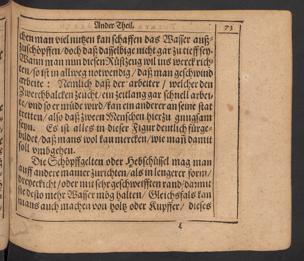 Ander Theil.
73
chen man viel nutzen kan schaffen das Wasser auß-
zuschöpffen / doch daß dasselbige nicht gar zu tieff sey.
Wann man nun diesen Rüstzeug wil ins werck rich-
ten / so ist in allweg notwendig / daß man geschwind
arbeite : Nemlich daß der arbeiter / welcher den
Zwerchbalcken zeucht / ein zeitlang gar schnell arbei-
te / und so er müde wird / kan ein anderer an seine stat
tretten / also daß zween Menschen hierzu gnugsam
seyn. Es ist alles in dieser Figur deutlich fürge-
bildet / daß mans wol kan mercken / wie man damit
soll umbgehen.
Die Schöpffgelten oder Hebschüsel mag man
auff andere manier zurichten / als in lengerer form /
dreyeckicht / oder mit sehr geschweifften rand / damit
sie desto mehr Wasser mög halten / Gleichsfals kan
mans auch machen von holtz oder Kupffer / dieses